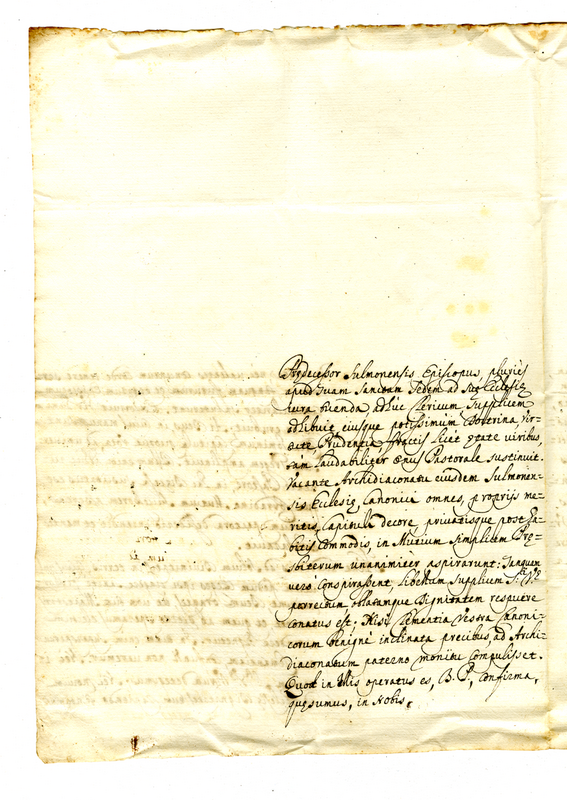 Predecessor Sulmonensis Episcopus, pluries
apud Tuam Sanctam Sedem ad suę Ecclesię
iura tuenda adhuc Clericum Supplicem
adhibuit, eiusque potissimum Doctrina, Vir-
tute, Prudentia fractis licet ętate viribus,
tam laudabiliter opus Pastorale sustinuit.
Vacante Archidiaconatu eiusdem Sulmonen-
sis Ecclesię, Canonici omnes, proprijs me-
ritis, Capituli decore, privatisque postha-
bitis commodis, in Mutium simplicem Pręs-
biterum unanimiter aspirarunt: Tanquam
vero conspirassent, libellum supplicem
porrectum, oblatamque dignitatem respuere
conatus est; Nisi Clementia Vestra Canoni-
corum benignè inclinata precibus, ad Archi-
diaconatum paterno monitu compulisset.
Quod in illis operatus es, B. P., confirma,
quęsumus, in Nobis.